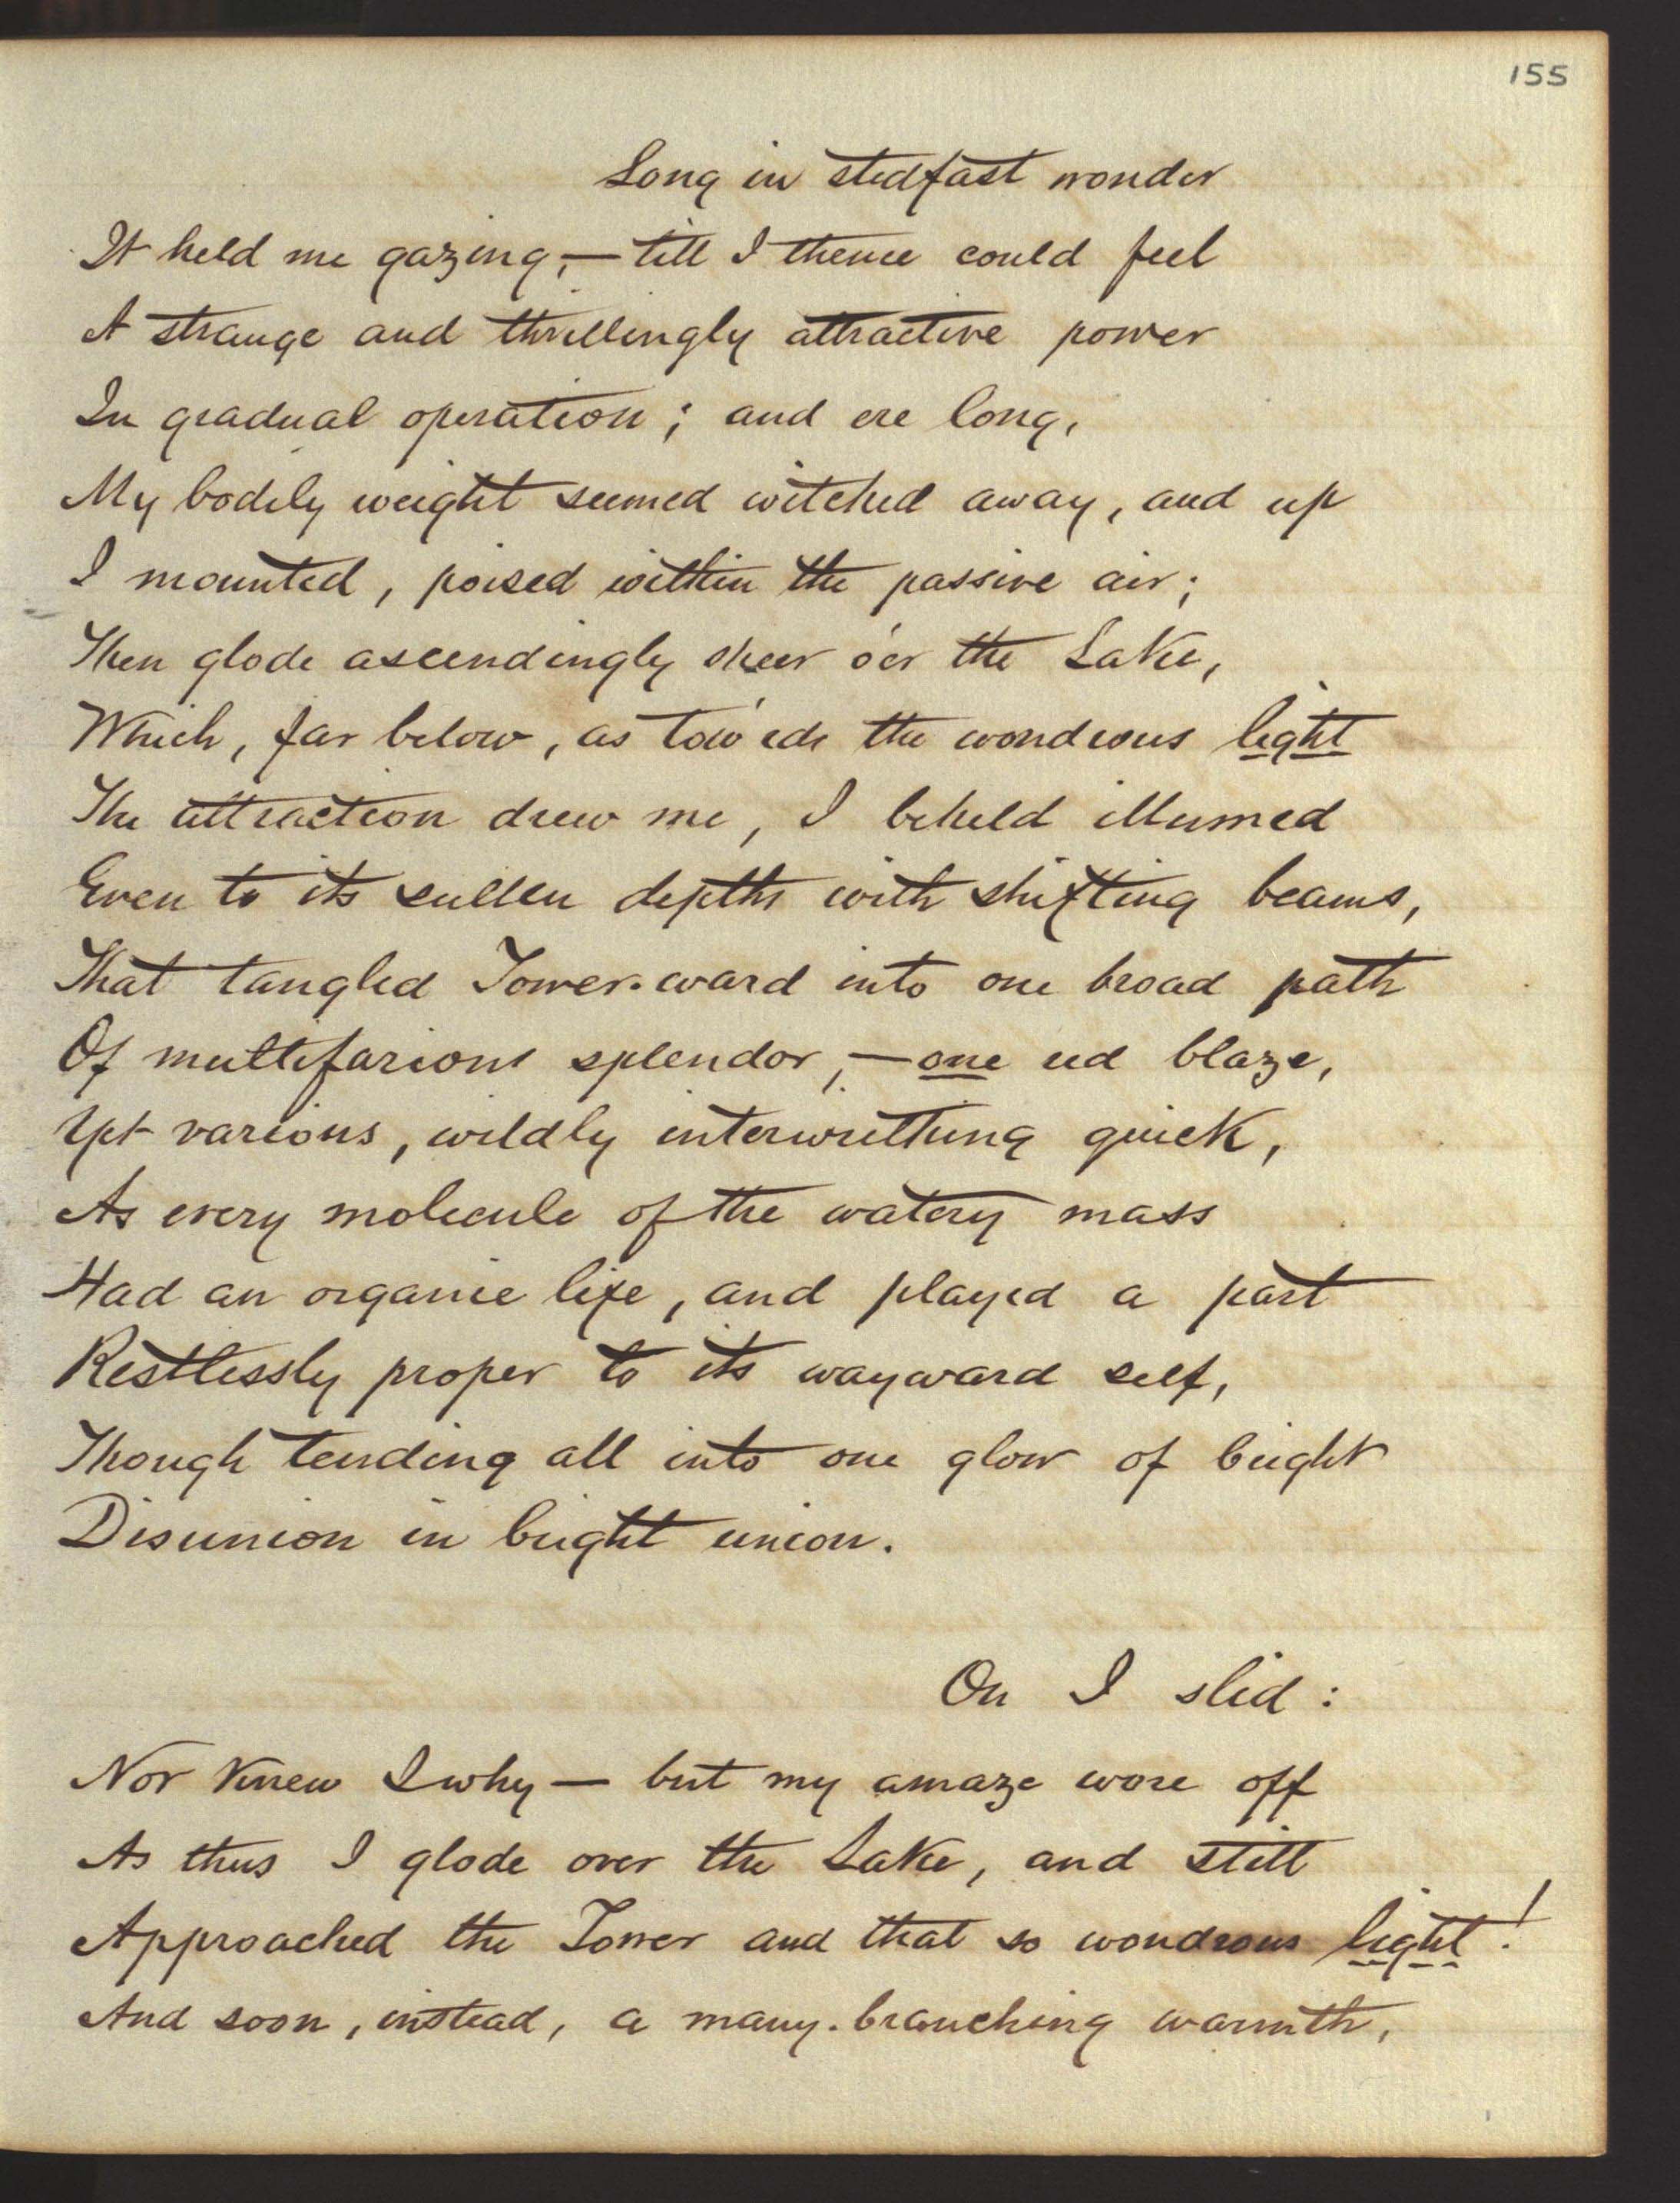 155
Long in stedfast wonder
It held me gazing,—till I thence could feel
A strange and thrillingly attractive power
In gradual operation; and ere long,
My bodily weight seemed witched away, and up
I mounted, poised within the passive air;
Then glode ascendingly sheer o'er the Lake,
Which, far below, as tow'rds the wondrous light
The attraction drew me, I beheld illumed
Even to its sullen depths with shifting beams,
That tangled Tower-ward into one broad path
Of multifarious splendor,—one red blaze,
Yet various, wildly interwrithing quick,
As every molecule of the watery mass
Had an organic life, and played a part
Restlessly proper to its wayward self,
Though tending all into one glow of bright
Disunion in bright union.
On I slid:
Nor knew I why— but my amaze wore off
As thus I glode over the Lake, and still
Approached the Tower and that so wondrous light!
And soon, instead, a many-branching warmth,